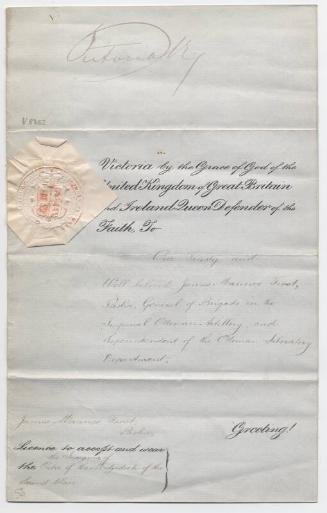 Victoria R
Victoria by the Grace of God of the
United Kingdom of Great Britain
and Ireland Queen Defender of the
Faith, To
Our Trusty and
Well beloved James Manners
Pasha, General of Brigade in the
Imperial Ottoman Artillery, and
Superintendent of the Ottoman Laboratory
Department;
Greeting!
James Manners
Pasha
Licence to accept and wear
the Insignia of
the Order of the Medjidieh of the
Second Class